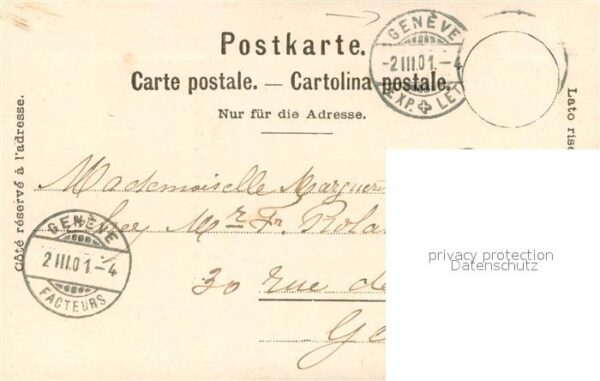 Postkarte.
Carte postale. — Cartolina postale.
Nur für die Adresse.
GENÈVE
-2 III.01.-4
EXP. LET
Lato rise
Côté réservé à l'adresse.
Mademoiselle Marguer
chez Mr Fr. Rola
30 rue de
Ge
GENÈVE
2 III.01-4
FACTEURS
privacy protection
Datenschutz